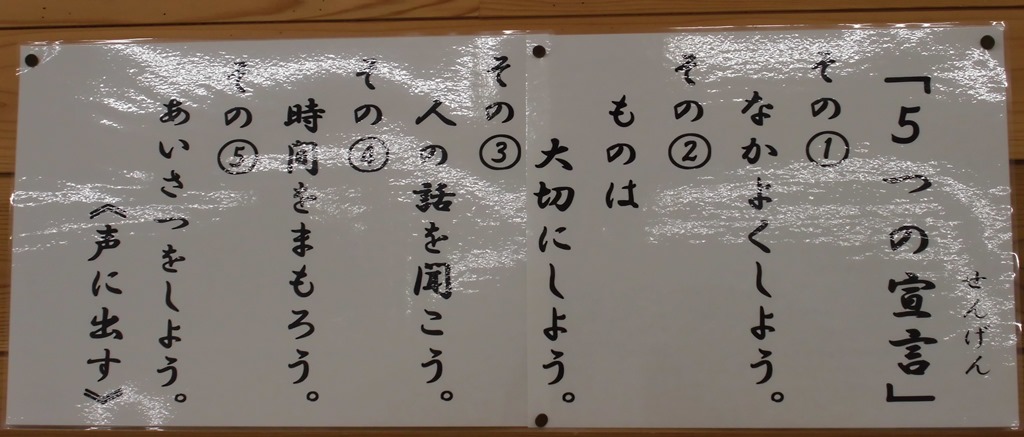 「5つの宣言」
せんげん
その①
なかよくしよう。
その②
ものは
大切にしよう。
その③
人の話を聞こう。
その④
時間をまもろう。
その⑤
あいさつをしよう。
《声に出す》